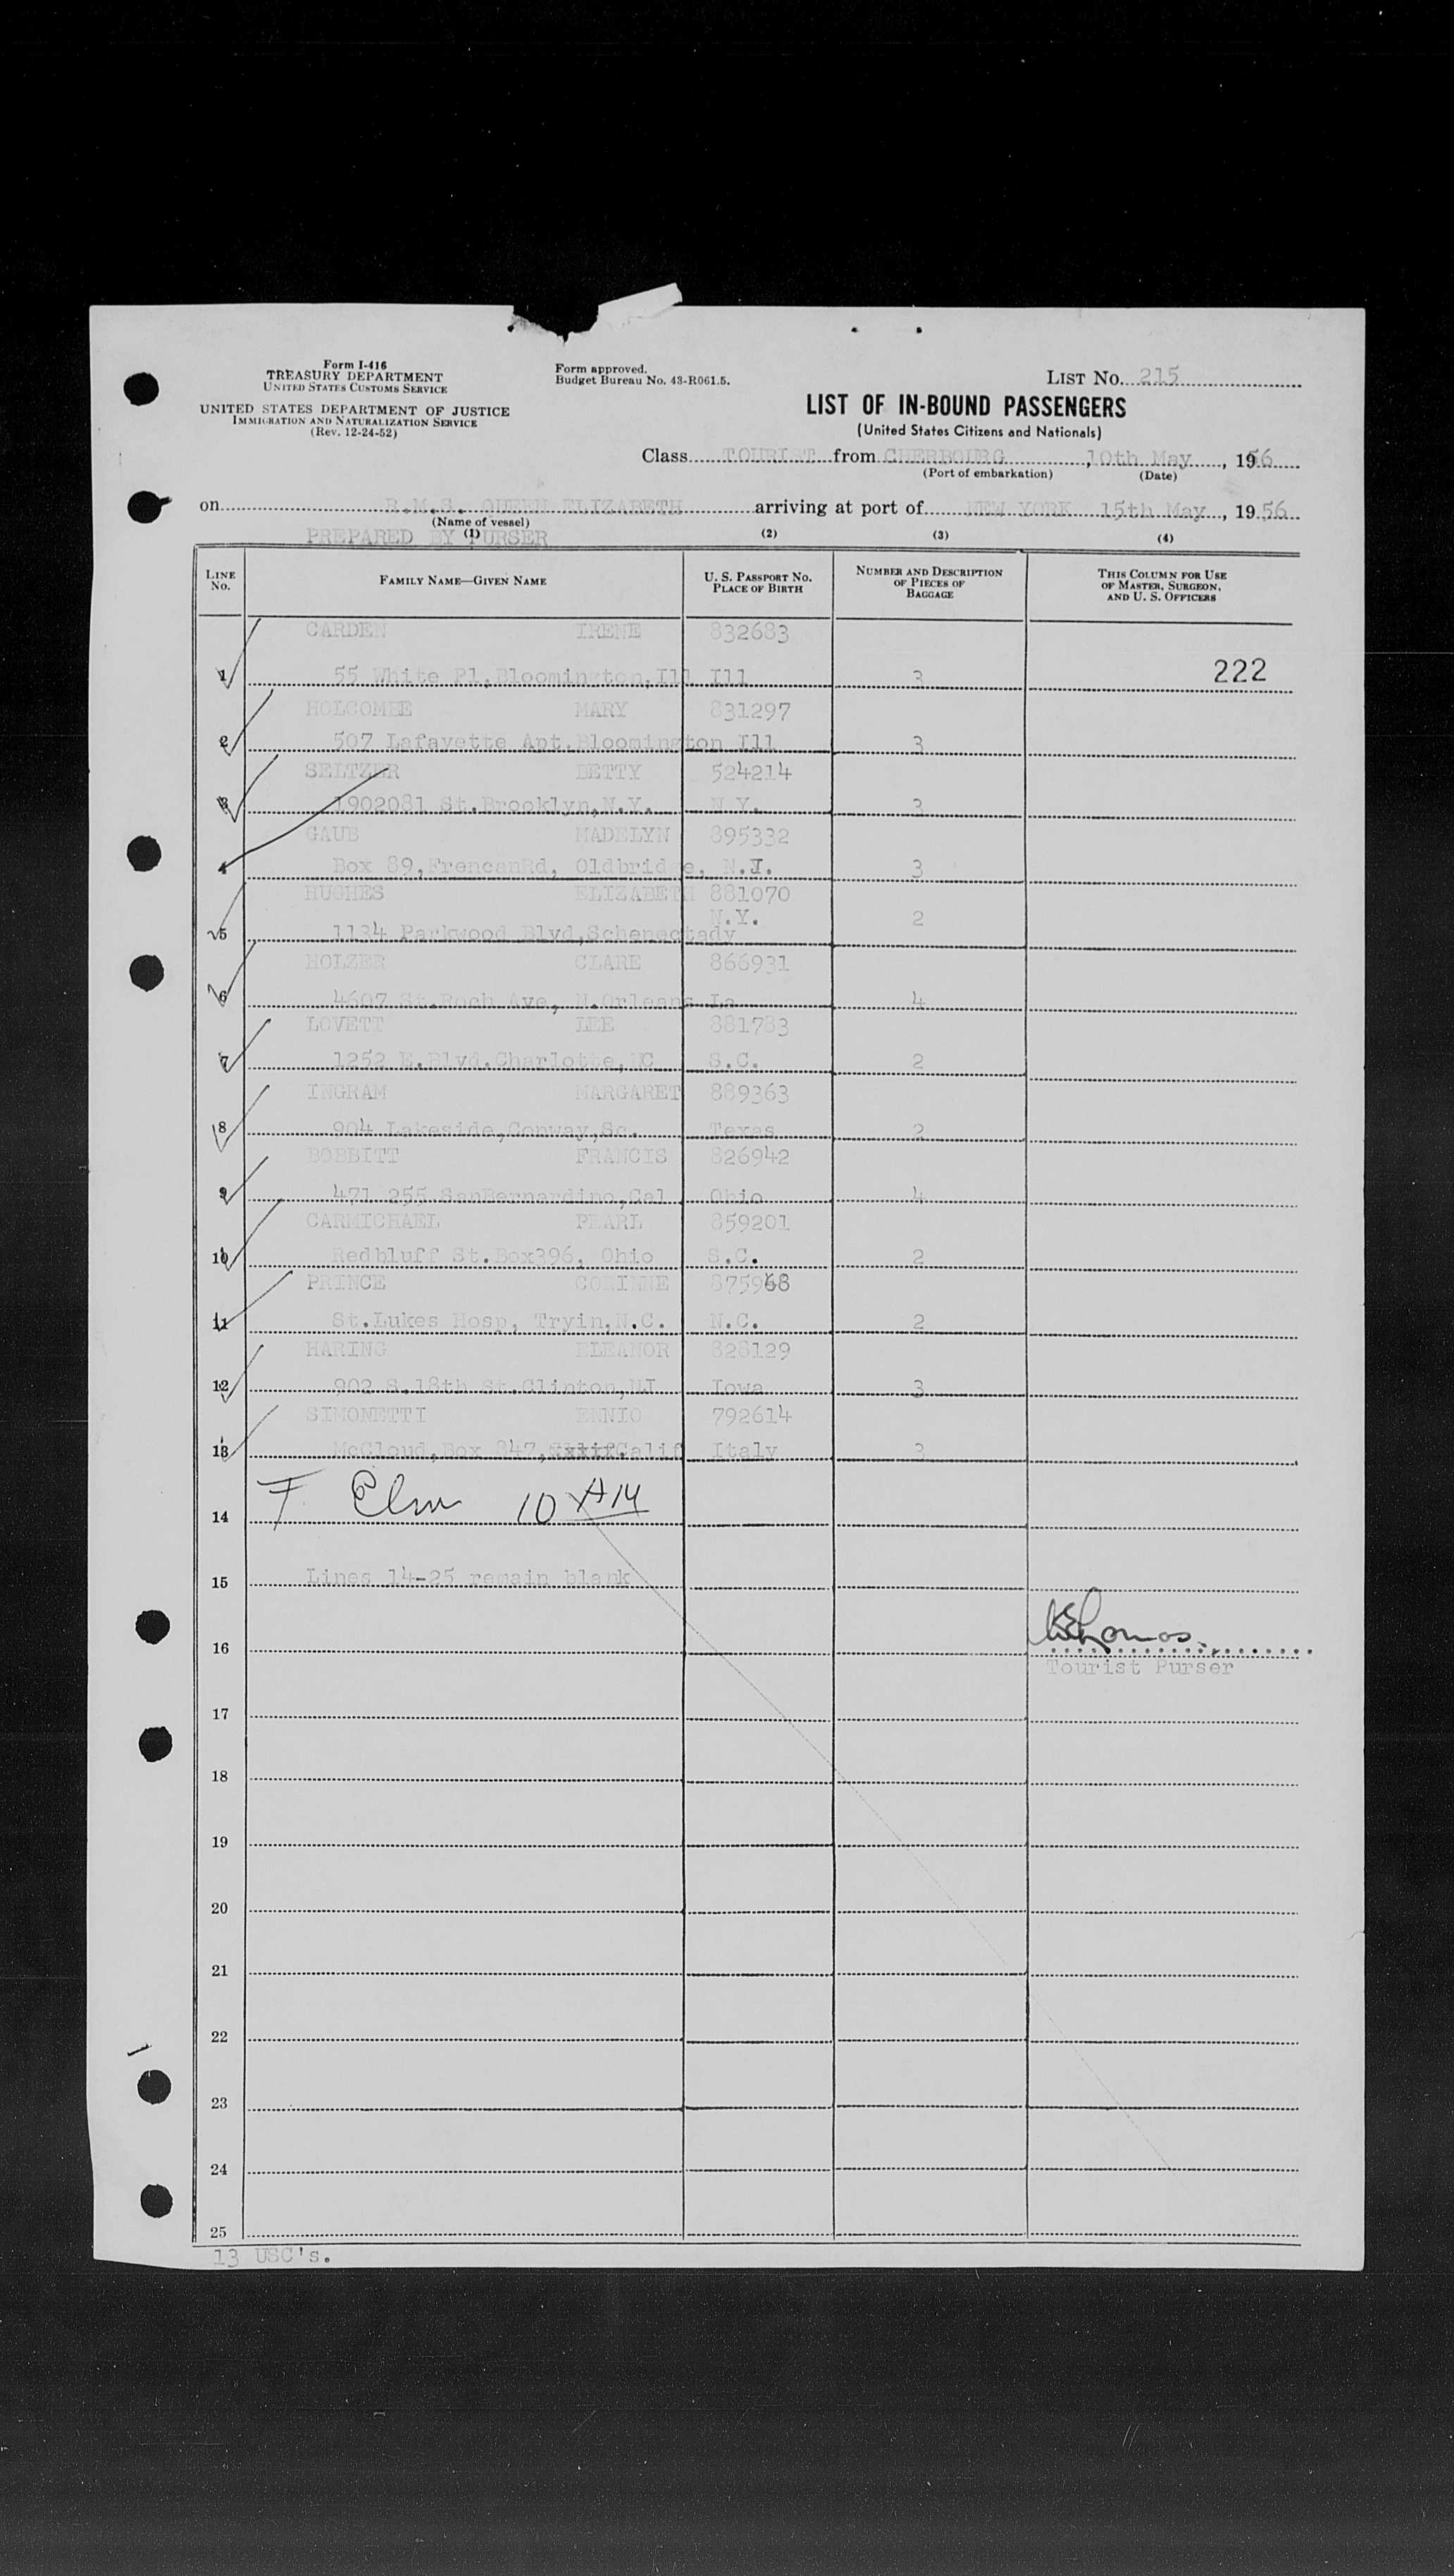 Form I-416
TREASURY DEPARTMENT
UNITED STATES CUSTOMS SERVICE
UNITED STATES DEPARTMENT OF JUSTICE
IMMIGRATION AND NATURALIZATION SERVICE
(Rev. 12-24-52)
Form approved.
Budget Bureau No. 43-R061.5.
LIST No. 215
LIST OF IN-BOUND PASSENGERS
(United States Citizens and Nationals)
Class TOURIST from CHERBOURG, 10th May, 1956
(Port of embarkation) (Date)
on R.M.S. QUEEN ELIZABETH arriving at port of NEW YORK 15th May, 1956
(Name of vessel)
PREPARED BY PURSER
(1) (2) (3) (4)
LINE No. FAMILY NAME—GIVEN NAME U. S. PASSPORT No. PLACE OF BIRTH NUMBER AND DESCRIPTION OF PIECES OF BAGGAGE THIS COLUMN FOR USE OF MASTER, SURGEON, AND U. S. OFFICERS
CARDEN IRENE 832683
1 55 White Pl,Bloomington,Ill Ill 3 222
HOLCOMBE MARY 831297
2 507 Lafayette Apt.Bloomington Ill 3
SELTZER BETTY 524214
3 1902081 St.Brooklyn,N.Y. N.Y. 3
GAUB MADELYN 895332
4 Box 89,FrencanRd, Oldbridge, N.J. 3
HUGHES ELIZABETH 881070
N.Y. 2
5 1134 Parkwood Blvd,Schenectady
HOLZER CLARE 866931
6 4607 St.Roch Ave, N.Orleans La 4
LOVETT LEE 881783
7 1252 E.Blvd.Charlotte,NC S.C. 2
INGRAM MARGARET 889363
8 904 Lakeside,Conway,Sc. Texas 2
BOBBITT FRANCIS 826942
9 471 255 SanBernardino,Cal Ohio 4
CARMICHAEL PEARL 859201
10 Redbluff St.Box396, Ohio S.C. 2
PRINCE CORINNE 875968
11 St.Lukes Hosp, Tryin,N.C. N.C. 2
HARING ELEANOR 828129
12 902 S.18th St.Clinton,NJ Iowa 3
SIMONETTI ENNIO 792614
13 McCloud,Box 847, Calif Italy 3
14 F. Elm 10 AM
15 Lines 14-25 remain blank
16
Tourist Purser
17
18
19
20
21
22
23
24
25
13 USC's.